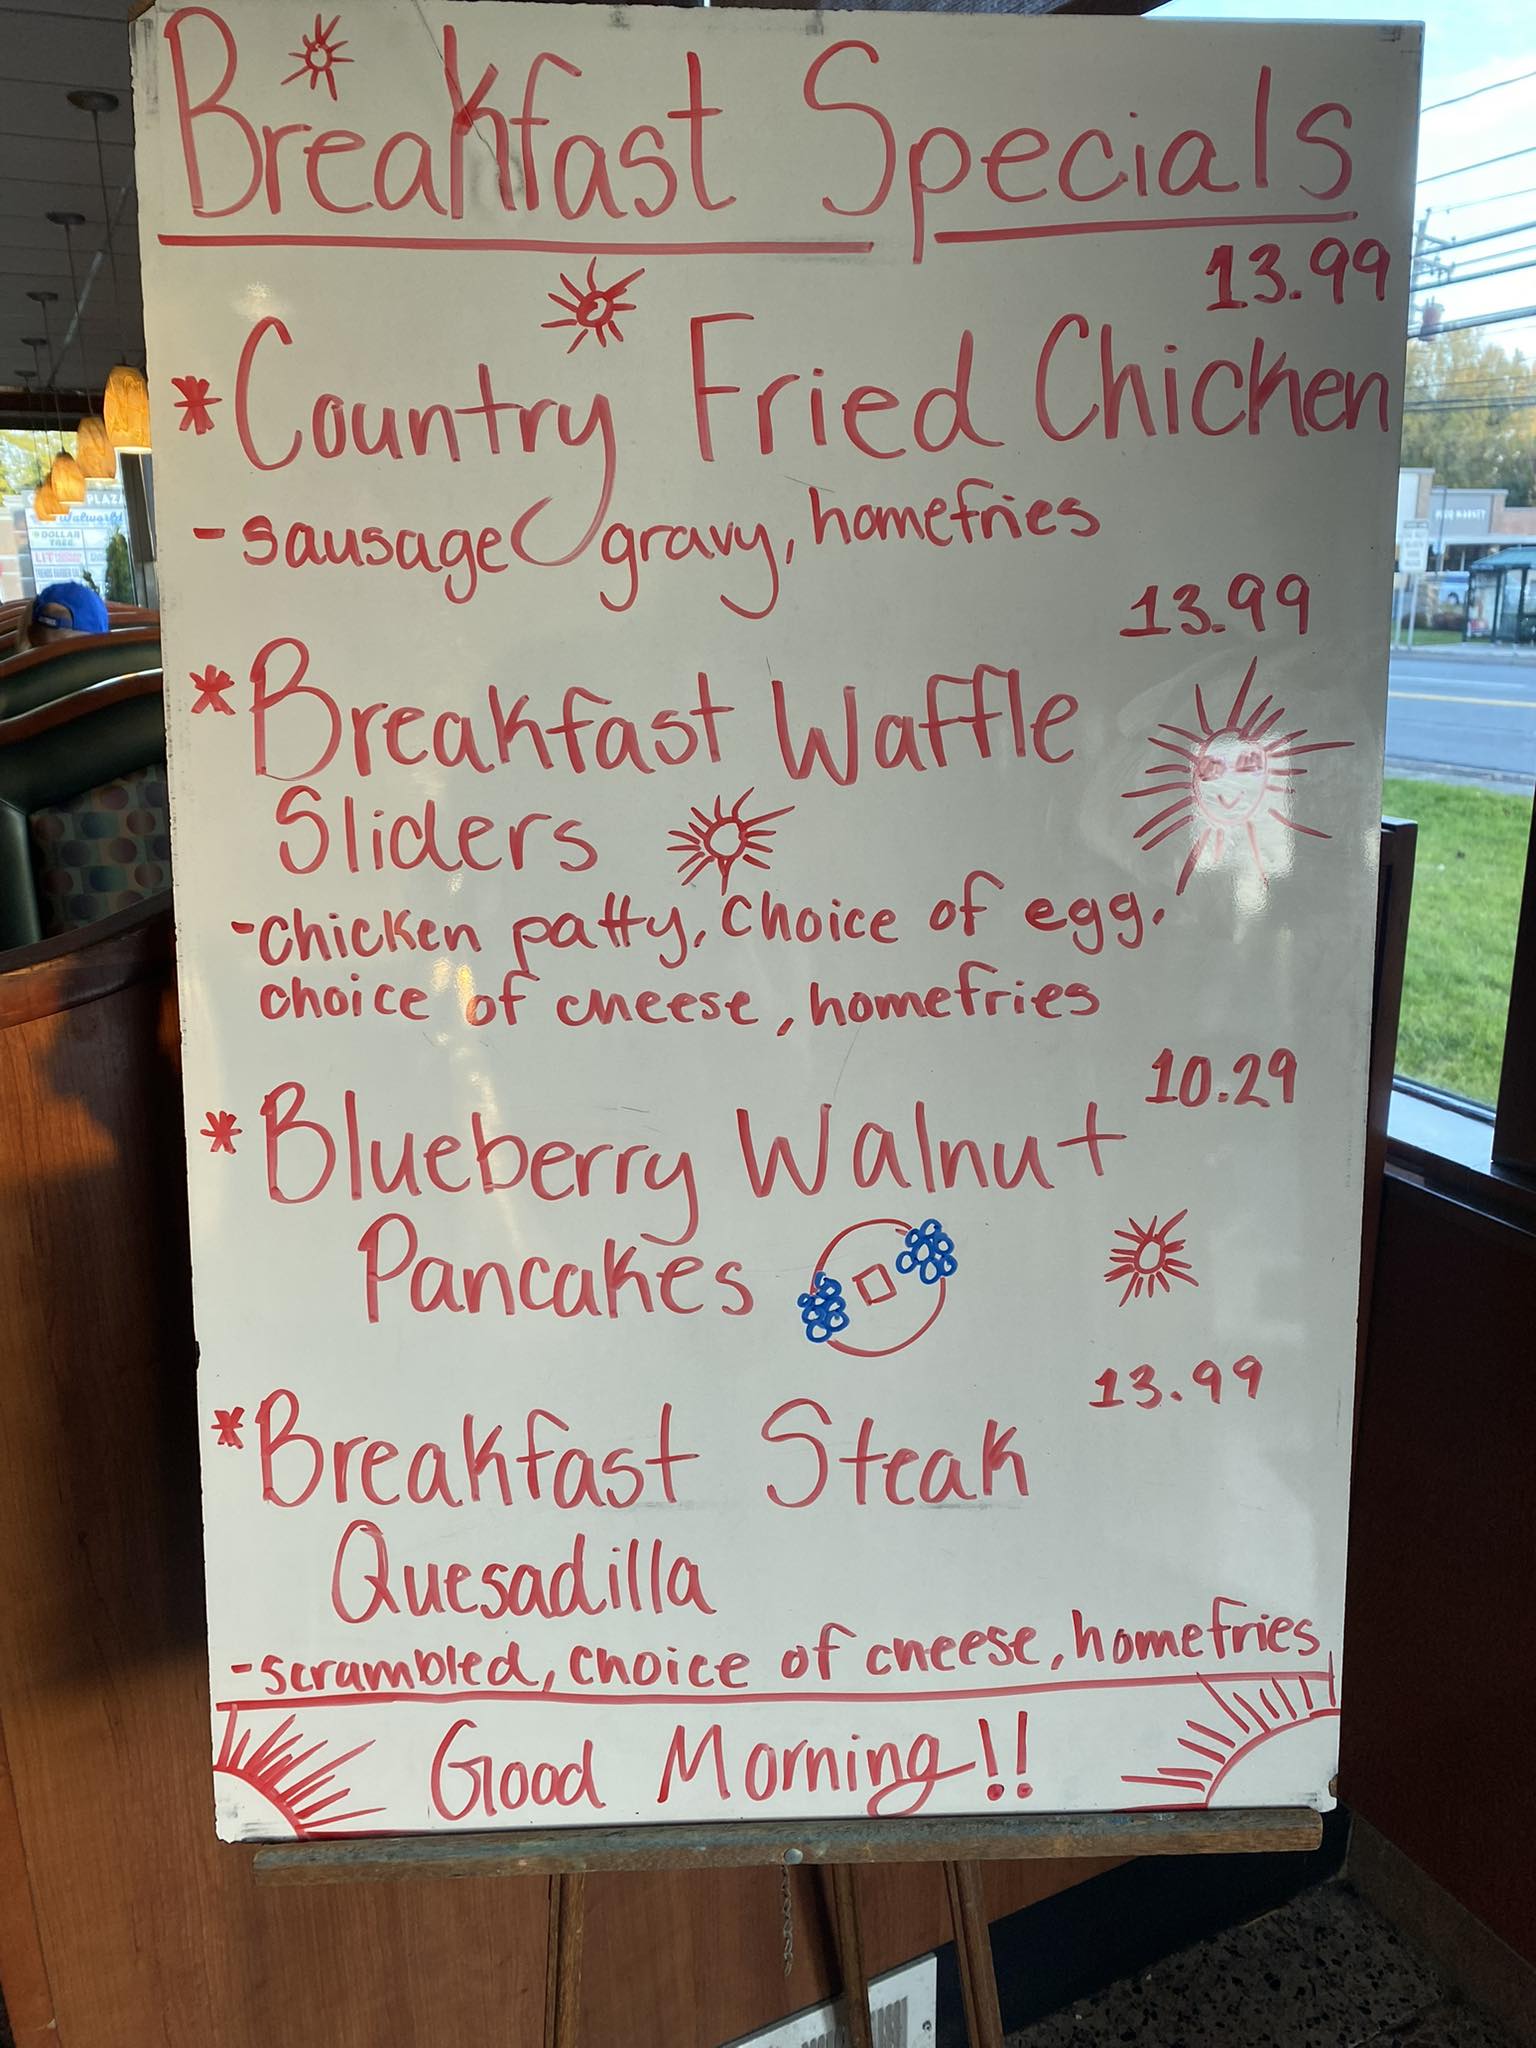 Breakfast Specials
13.99
*Country Fried Chicken
-sausage gravy, homefries
13.99
*Breakfast Waffle
Sliders
-chicken patty, choice of egg,
choice of cheese, homefries
10.29
*Blueberry Walnut
Pancakes
13.99
*Breakfast Steak
Quesadilla
-scrambled, choice of cheese, homefries
Good Morning!!
PLAZA
Walworth
DOLLAR
TREE